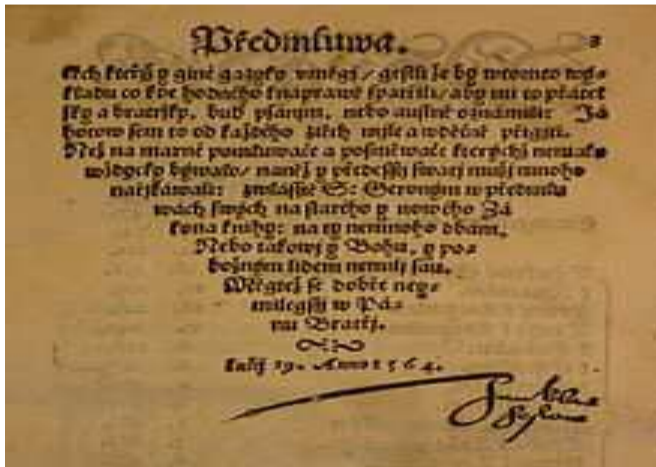 Předmluwa. 3
Těch kteřjž y giné gazyky vmněgj / gestli že by w tomto wý-
kladu co kde hodného k naprawě spatřili / aby mi to přátel
sky a bratrsky, buď psánjm, nebo austně oznámili: Já
hotow sem to od každého z těch mile a wděčně přigjti.
Než na marné pomluwače a posměwače kterýchž nemálo
wždycky býwalo / na něž y předessljj swatj mužj mnoho
nařjkáwali: zwlásstě S: Geronym w předmlu
wách swých na starého y nowého Zá
kona knihy: na ty nemnoho dbám.
Nebo takowj y Bohu, y po-
božným lidem nemilj sau.
Měgtež se dobře ney-
milegssj w Pá-
nu Bratřj.
19. Anno 1564.